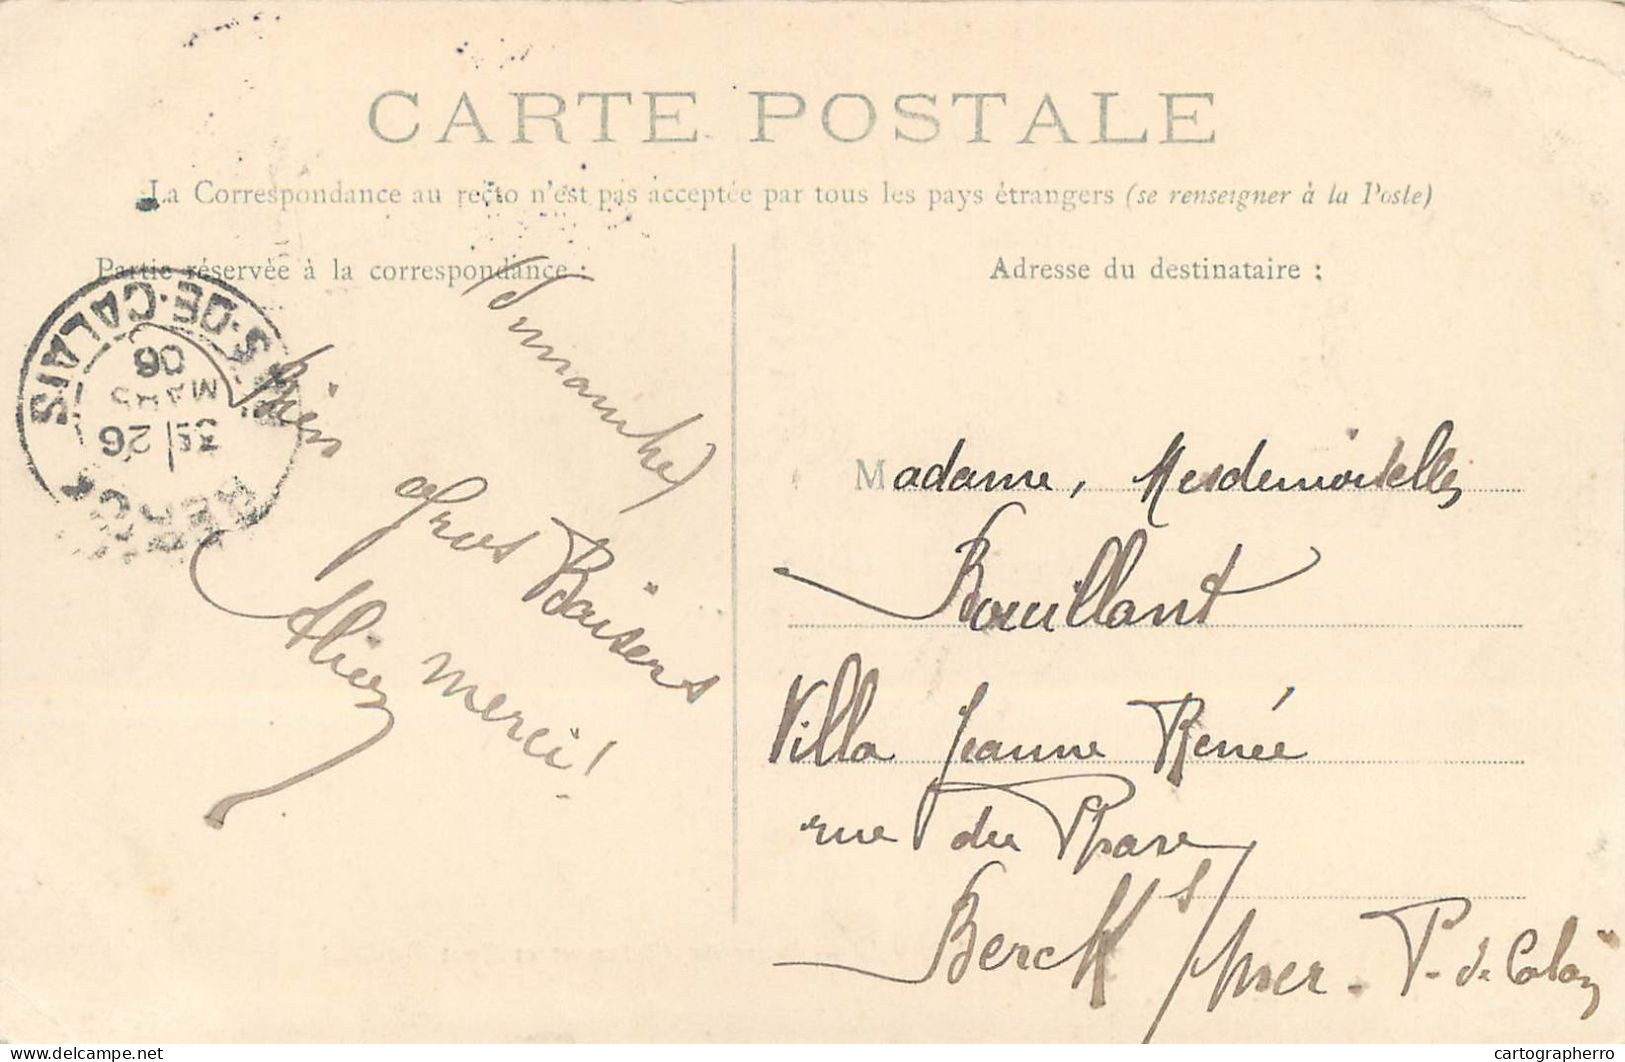 CARTE POSTALE
La Correspondance au recto n'est pas acceptée par tous les pays étrangers (se renseigner à la Poste)
Partie réservée à la correspondance :
Adresse du destinataire :
PAS-DE-CALAIS
BERCK
3E 26
MARS
06
Dimanche
bien
Gros Baisers
merci !
Madame, Mesdemoiselles
Rouillant
Villa Jeanne Renée
rue du Phare
Berck s/mer - P. de Calais
Delcampe.net
cartographerro